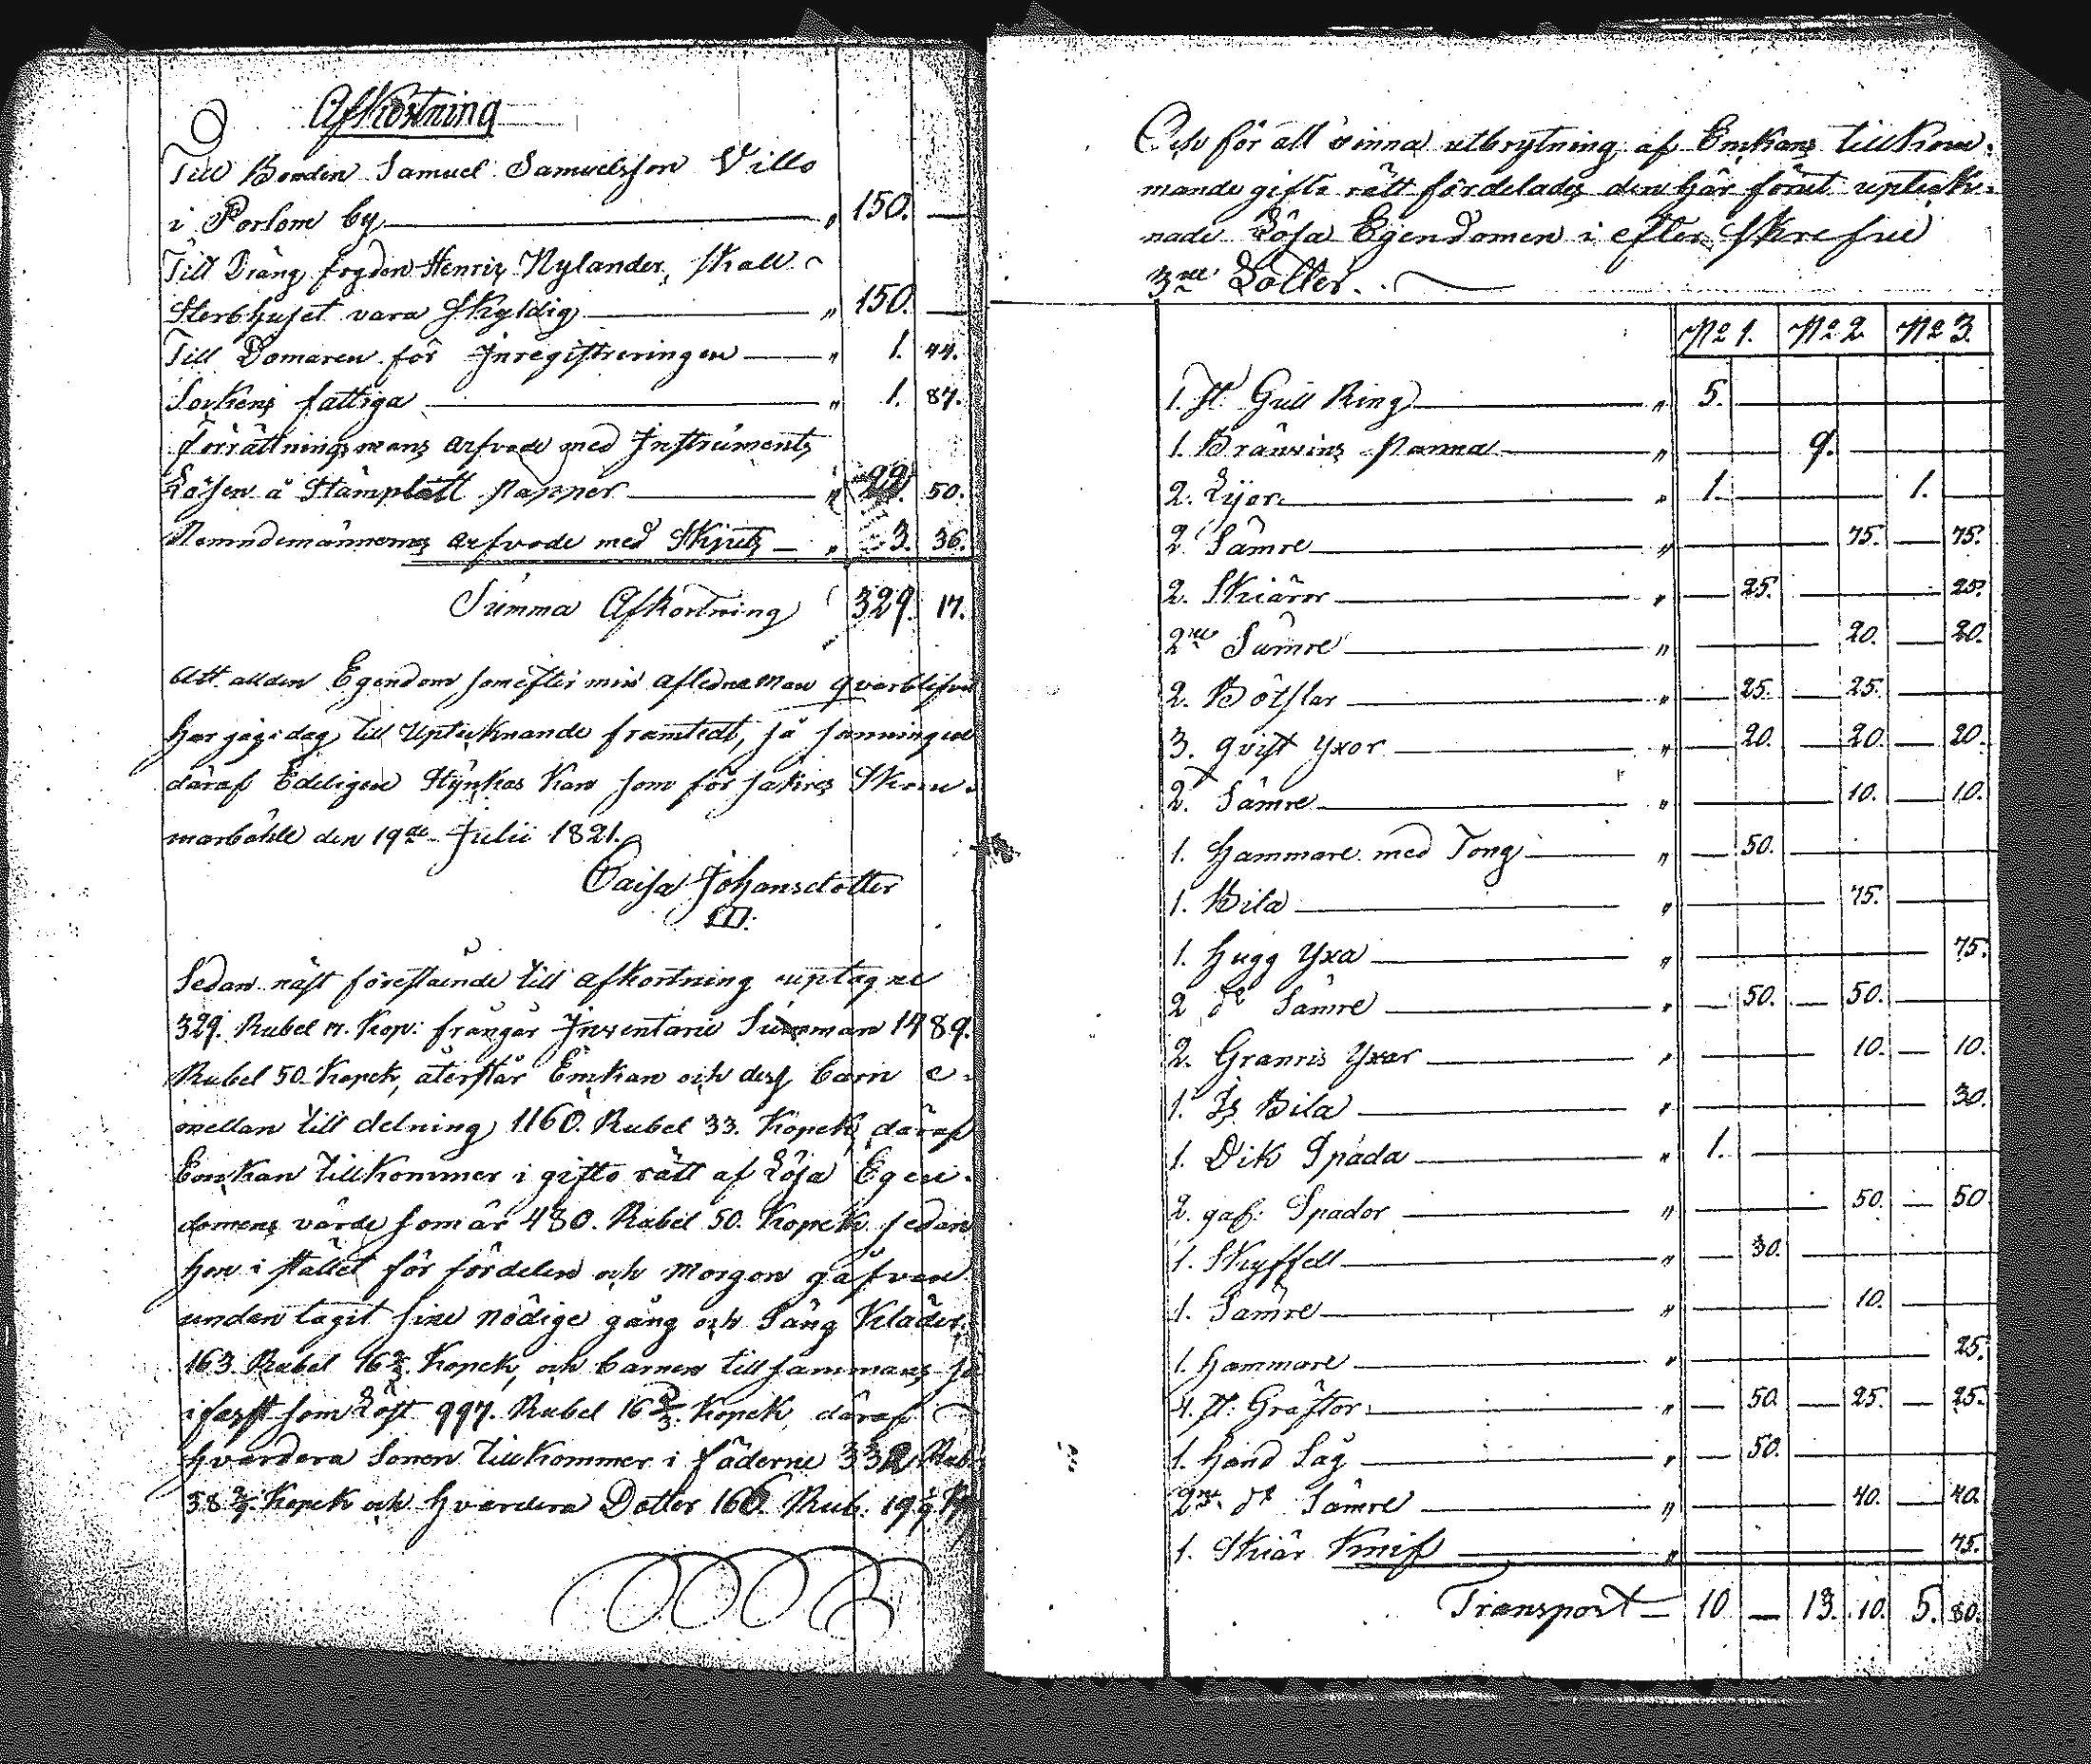 Afkortning
Till Bonden Samuel Samuelsson Villo
i Porlom by „ 150. —
Till Dräng fogden Henric Nylander, skall
Sterbhuset vara skyldig „ 150. —
Till Domaren för Inregistreringen „ 1. 44.
Sockens fattiga „ 1. 87.
Förrättningsmans arfvode med Instruments
Lösen å Stämplatt papper „ 22. 50.
Nämndemännernes arfvode med Skjuts „ 3. 36.
Summa Afkortning 329. 17.
Att all den Egendom som efter min afledne Man qvarblifvit
har jag i dag till Upteknande framtedt, så sanningen
däraf Edeligen Styrkas kan som försäkras Skom-
marböhle den 19de Julii 1821.
Caisa Johansdotter
Sedan näst föreståënde till afkortning uptagne
329. Rubel 17. Kop: frångår Inventarie Summan 1489.
Rubel 50. Kopek, återstår Enkan och dess barn e-
mellan till delning 1160. Rubel 33. Kopek, däraf
Enkan tillkommer i gifto rätt af Lösa Egen-
domens värde som är 480. Rubel 50. Kopek sedan
hon i stället för fördelen och morgon gåfvan
undantagit sine nödige gång och Säng Kläder,
163 Rubel 16 2/3. Kopek, och barnen tillsammans så
i fast som Löst 997. Rubel 16 2/3. Kopek, däraf
hvardera Sonen tillkommer i fäderne 332 Rub.
38 2/9. Kopek och hvardera Dotter 166. Rub. 19 1/9 K
Och för att vinna utbrytning af Enkans tillkom-
mande gifto rätt fördelades den här förut uptek-
nade Lösa Egendomen i efterskrefne
3ne Lotter.
No 1. No 2 No 3.
1. st. Gull Ring „ 5.
1. Bränvins panna „ 9.
2. Lijor „ 1. 1.
2 Sämre „ 75. 75.
2. Skiäror „ 25. 25.
2ne Sämre „ 20. 20.
2. Bötslar „ 25. 25.
3. qvist Yxor „ 20. 20. 20.
2. Sämre „ 10. 10.
1. Hammare med Tong „ 50.
1. Bila „ 75.
1. Hugg Yxa „ 75.
2 do Sämre „ 50. 50.
2. Granris Yxar „ 10. 10.
1. Is Bila „ 30.
1. Dik Spada „ 1.
2. gaf: Spador „ 50. 50
1. Skyffell „ 30.
1. Sämre „ 10.
1. Hammare „ 25.
4. st: Gräftor „ 50. 25. 25.
1. Hand Såg „ 50.
2ne do Sämre „ 40. 40.
1. Skiär Knif „ 75.
Transport 10 — 13. 10. 5. 80.